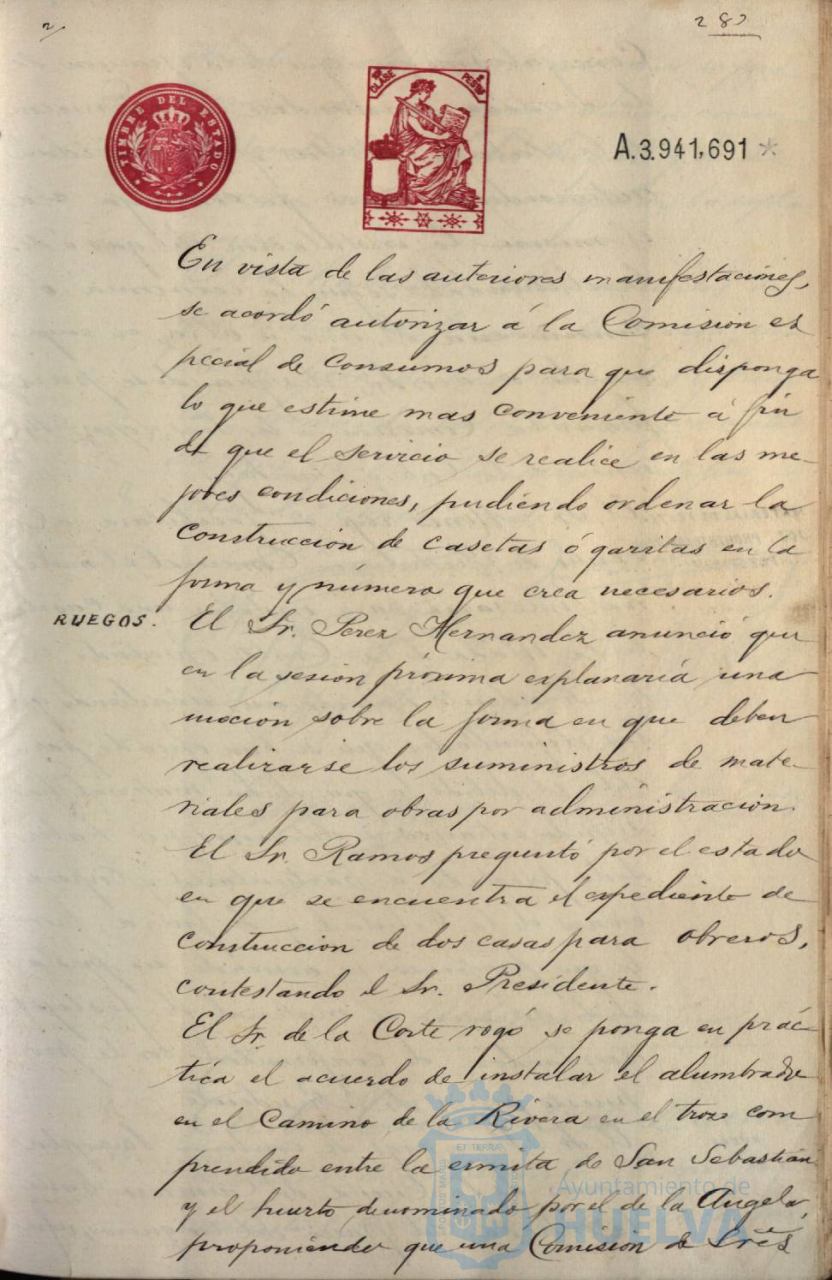 282
TIMBRE DEL ESTADO
CLASE PESETAS
A.3.941,691 *
En vista de las anteriores manifestaciones,
se acordó autorizar á la Comision es
pecial de Consumos para que disponga
lo que estime mas conveniente á fin
de que el servicio se realice en las me-
jores condiciones, pudiendo ordenar la
Construccion de casetas ó garitas en la
forma y número que crea necesarios.
RUEGOS.
El Sr. Perez Hernandez anunció que
en la sesion próxima explanaria una
mocion sobre la forma en que deben
realizarse los suministros de mate-
riales para obras por administracion.
El Sr. Ramos preguntó por el estado
en que se encuentra el expediente de
Construccion de dos casas para obreros,
contestando el Sr. Presidente.
El Sr. de la Corte rogó se ponga en prác-
tica el acuerdo de instalar el alumbrado
en el Camino de la Rivera en el trozo com
prendido entre la ermita de San Sebastián
y el huerto denominado por el de la Angela,
proponiendo que una Comision de Sres
Ayuntamiento de
HUELVA